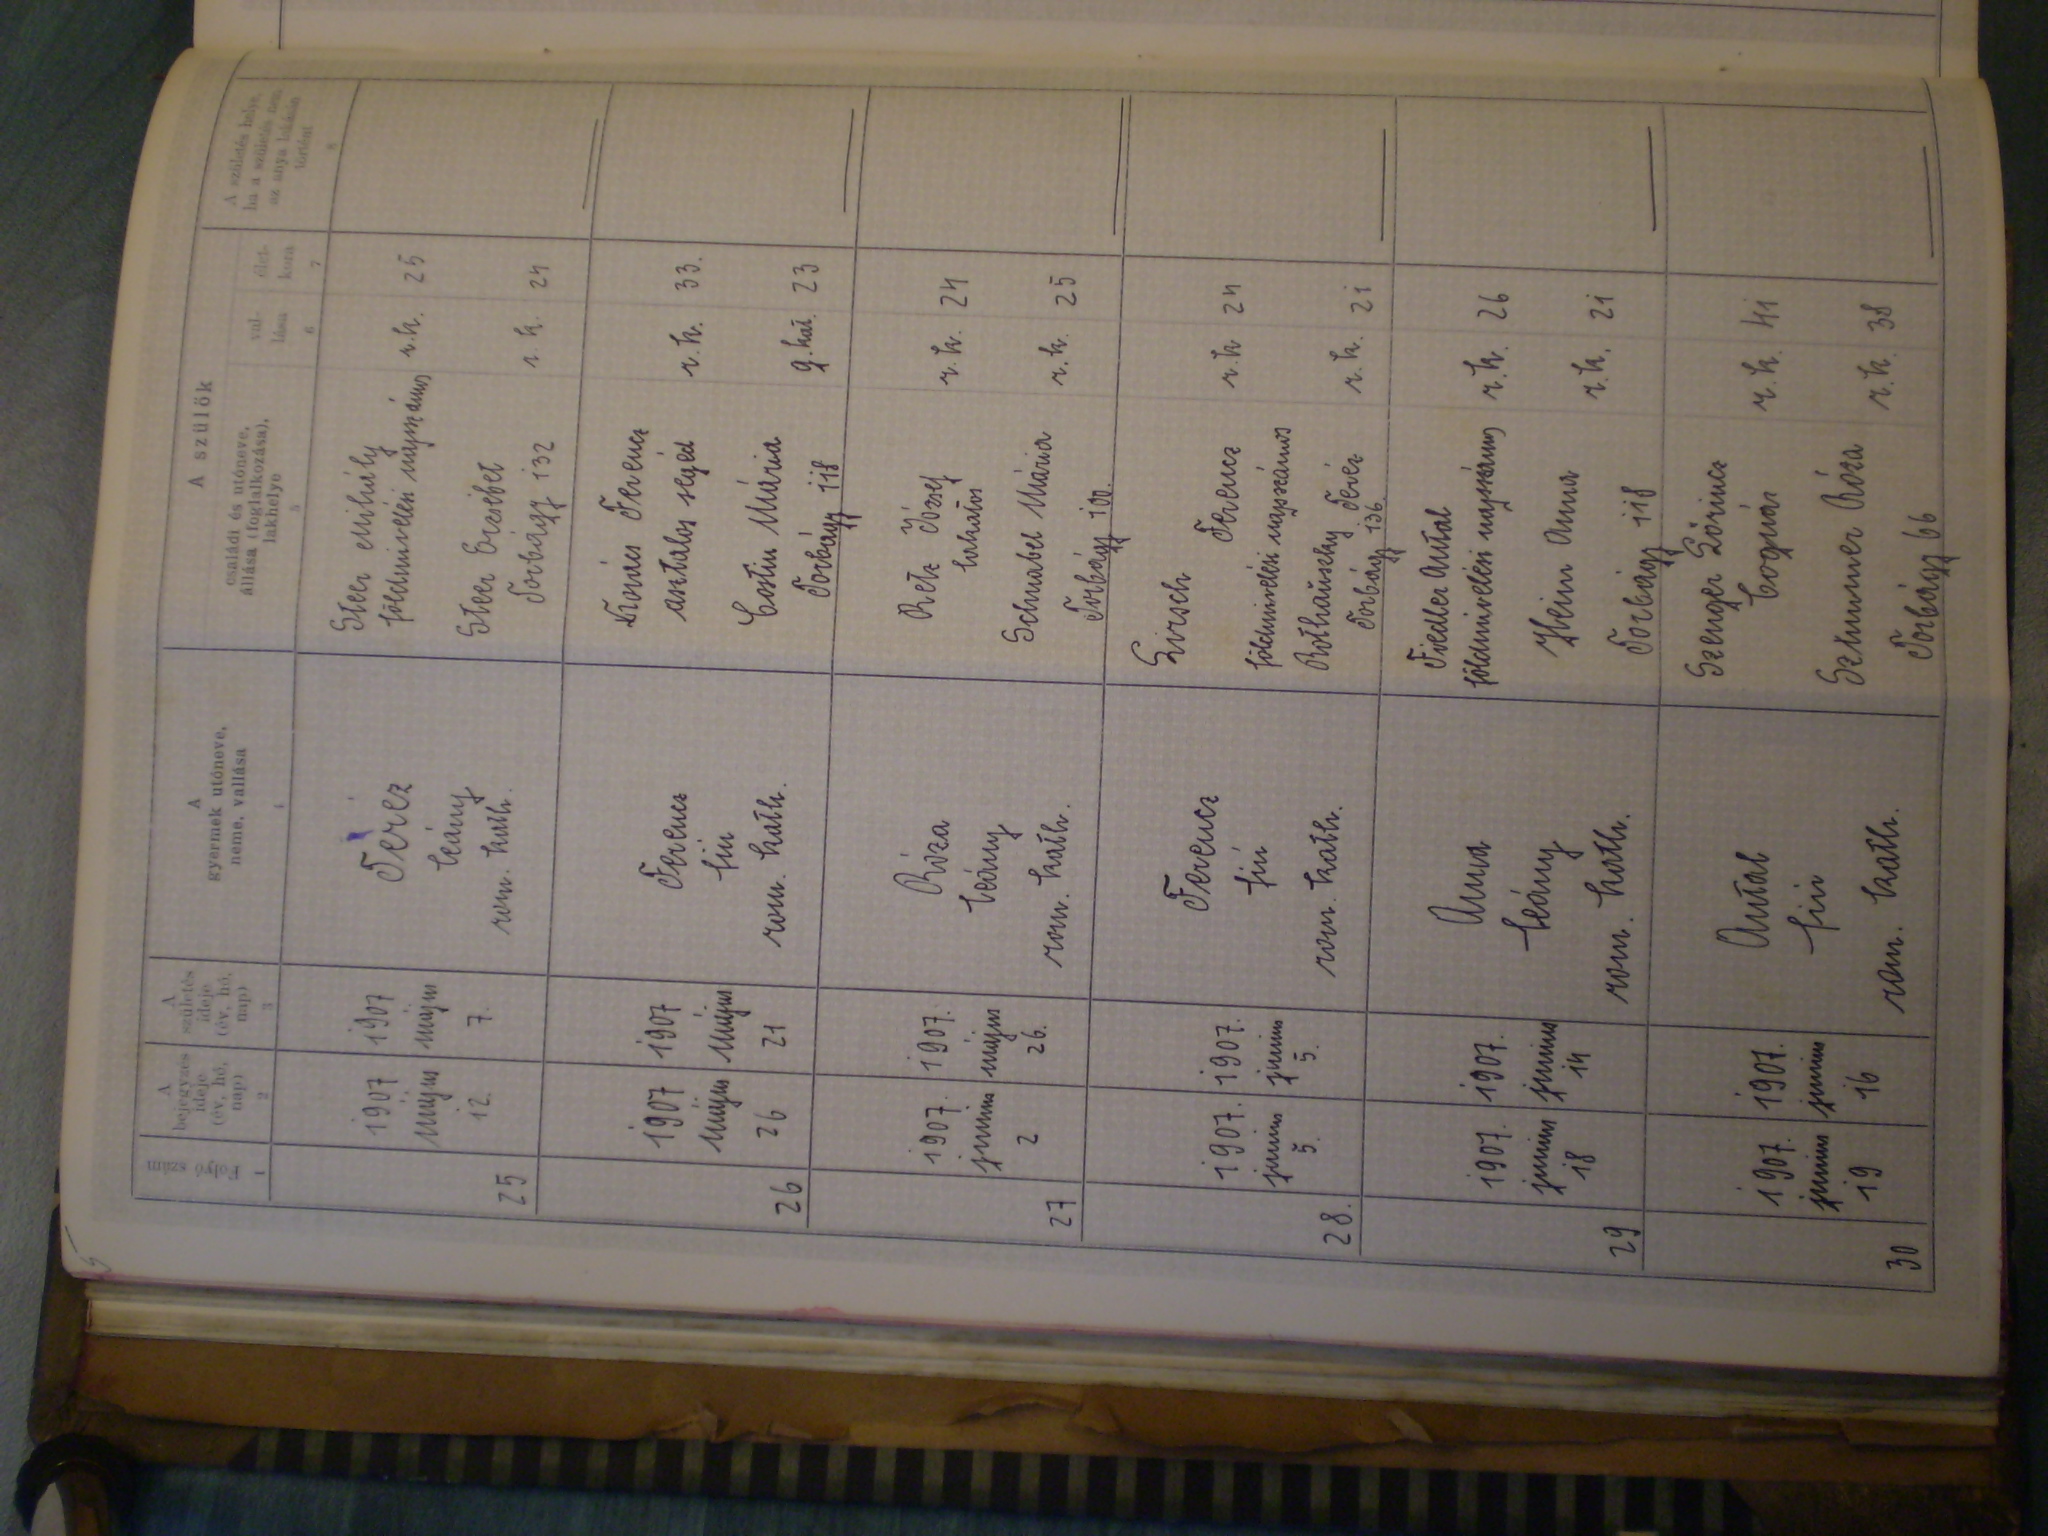 Folyó szám
1
A bejegyzés ideje (év, hó, nap)
2
A születés ideje (év, hó, nap)
3
A gyermek utóneve, neme, vallása
4
A szülők
családi és utóneve, állása (foglalkozása), lakhelye
5
vallása
6
életkora
7
A születés helye, ha a születés nem az anya lakásán történt
8
25
1907
május
12.
1907
május
7.
Teréz
leány
rom. kath.
Steer Mihály
földmivelési napszámos
r.k.
25
Steer Erzsébet
r.k.
24
Torbágy 132
26
1907
május
26
1907
május
21
Ferencz
fiú
rom. kath.
Ferencz
asztalos segéd
r.k.
33.
Costin Mária
g.kat.
23
Torbágy 118
27
1907.
junius
2
1907.
május
26.
Róza
leány
rom. kath.
József
lakatos
r.k.
24
Schnabel Mária
r.k.
25
Torbágy 100.
28.
1907.
junius
5.
1907.
junius
5.
Ferencz
fiú
rom. kath.
Ferencz
földmivelési napszámos
r.k
24
Teréz
r.k.
21
Torbágy 136.
29
1907.
junius
18
1907.
junius
14
Anna
leány
rom. kath.
Fiedler Antal
földmivelési napszámos
r.k.
26
Hein Anna
r.k.
21
Torbágy 118
30
1907.
junius
19
1907.
junius
16
Antal
fiú
rom. kath.
Szenger Lőrincz
bognár
r.k.
41
Róza
r.k.
38
Torbágy 66